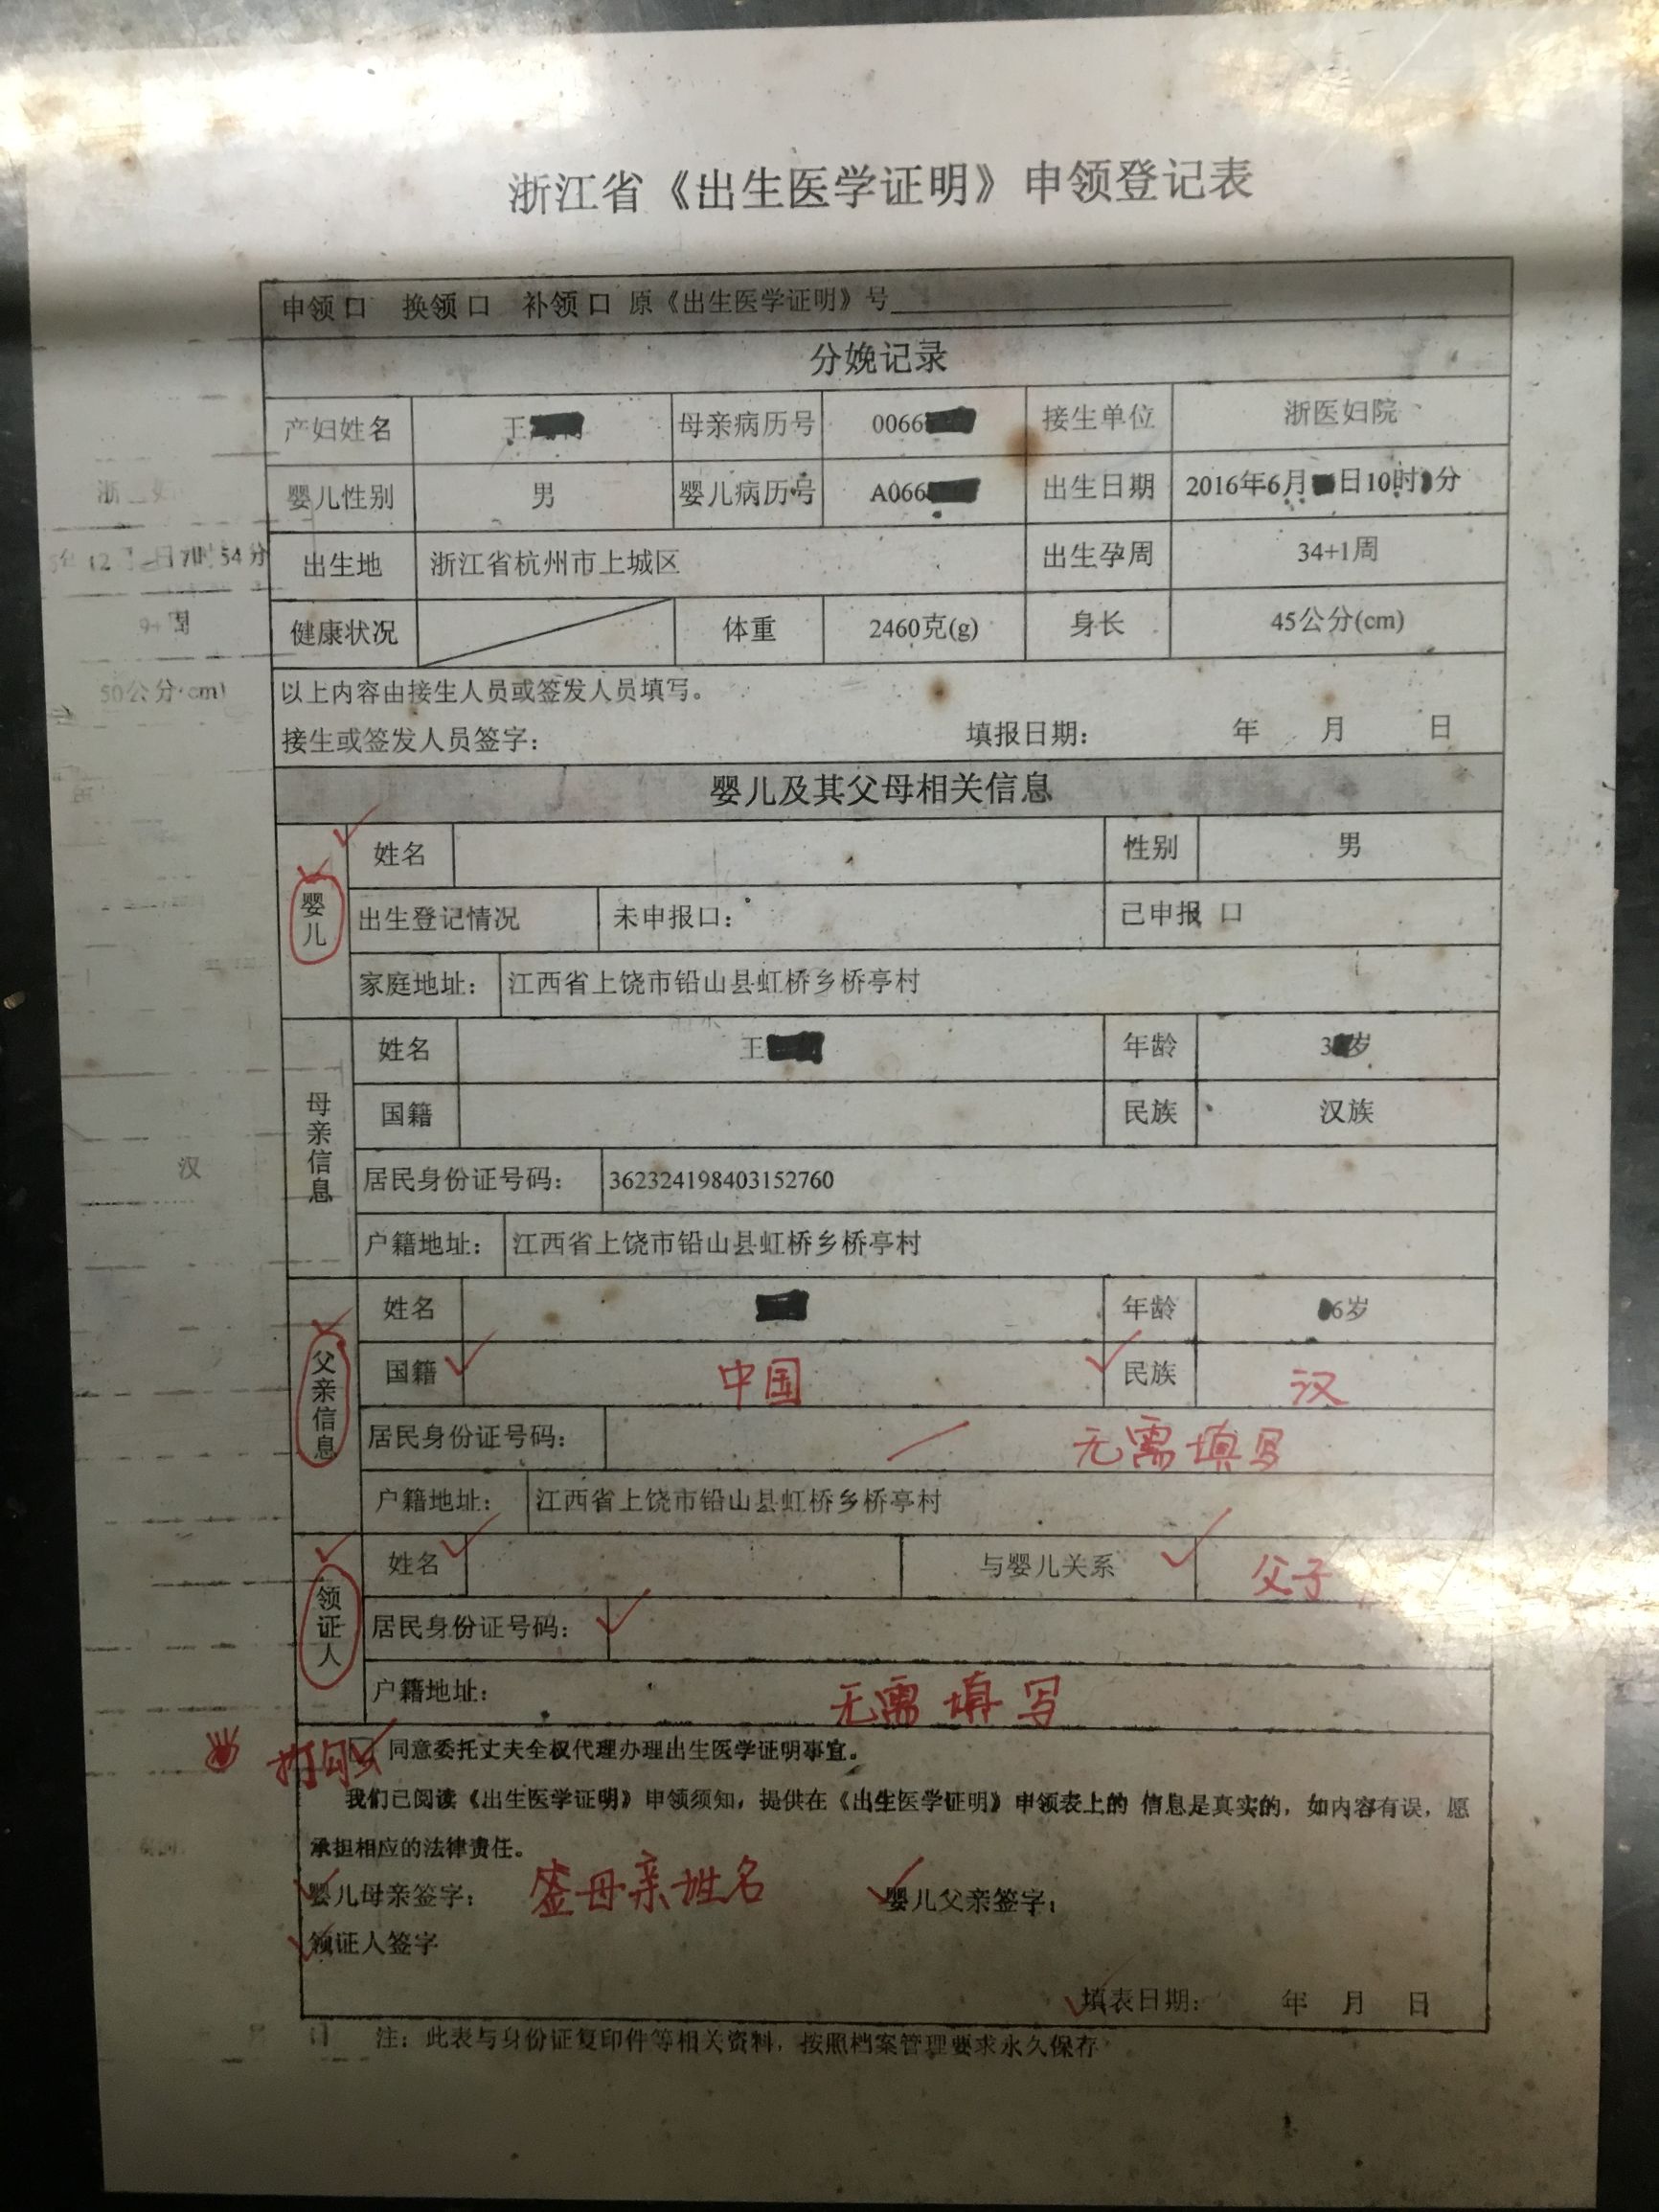 浙江省《出生医学证明》申领登记表
申领口 换领口 补领口 原《出生医学证明》号
分娩记录
产妇姓名 王 母亲病历号 0066 接生单位 浙医妇院
婴儿性别 男 婴儿病历号 A066 出生日期 2016年6月 日10时 分
出生地 浙江省杭州市上城区 出生孕周 34+1周
健康状况 体重 2460克(g) 身长 45公分(cm)
以上内容由接生人员或签发人员填写。
接生或签发人员签字： 填报日期： 年 月 日
婴儿及其父母相关信息
婴儿
姓名 性别 男
出生登记情况 未申报口： 已申报 口
家庭地址： 江西省上饶市铅山县虹桥乡桥亭村
母亲信息
姓名 王 年龄 3 岁
国籍 民族 汉族
居民身份证号码： 362324198403152760
户籍地址： 江西省上饶市铅山县虹桥乡桥亭村
父亲信息
姓名 年龄 6岁
国籍 中国 民族 汉
居民身份证号码： 无需填写
户籍地址： 江西省上饶市铅山县虹桥乡桥亭村
领证人
姓名 与婴儿关系 父子
居民身份证号码：
户籍地址： 无需填写
打勾 同意委托丈夫全权代理办理出生医学证明事宜。
我们已阅读《出生医学证明》申领须知，提供在《出生医学证明》申领表上的 信息是真实的，如内容有误，愿
承担相应的法律责任。
婴儿母亲签字： 签母亲姓名 婴儿父亲签字：
领证人签字
填表日期： 年 月 日
注：此表与身份证复印件等相关资料，按照档案管理要求永久保存
54分
50公分(cm)
汉